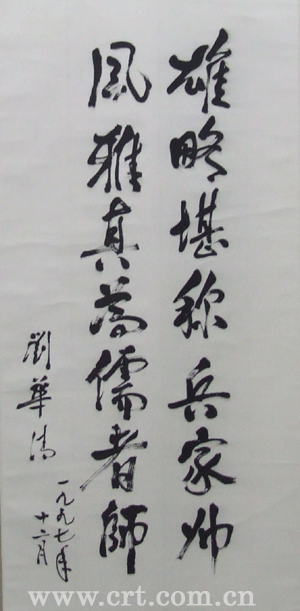 雄略堪称兵家帅
風雅真為儒者師
劉華清
一九九七年
十二月
www.crt.com.cn